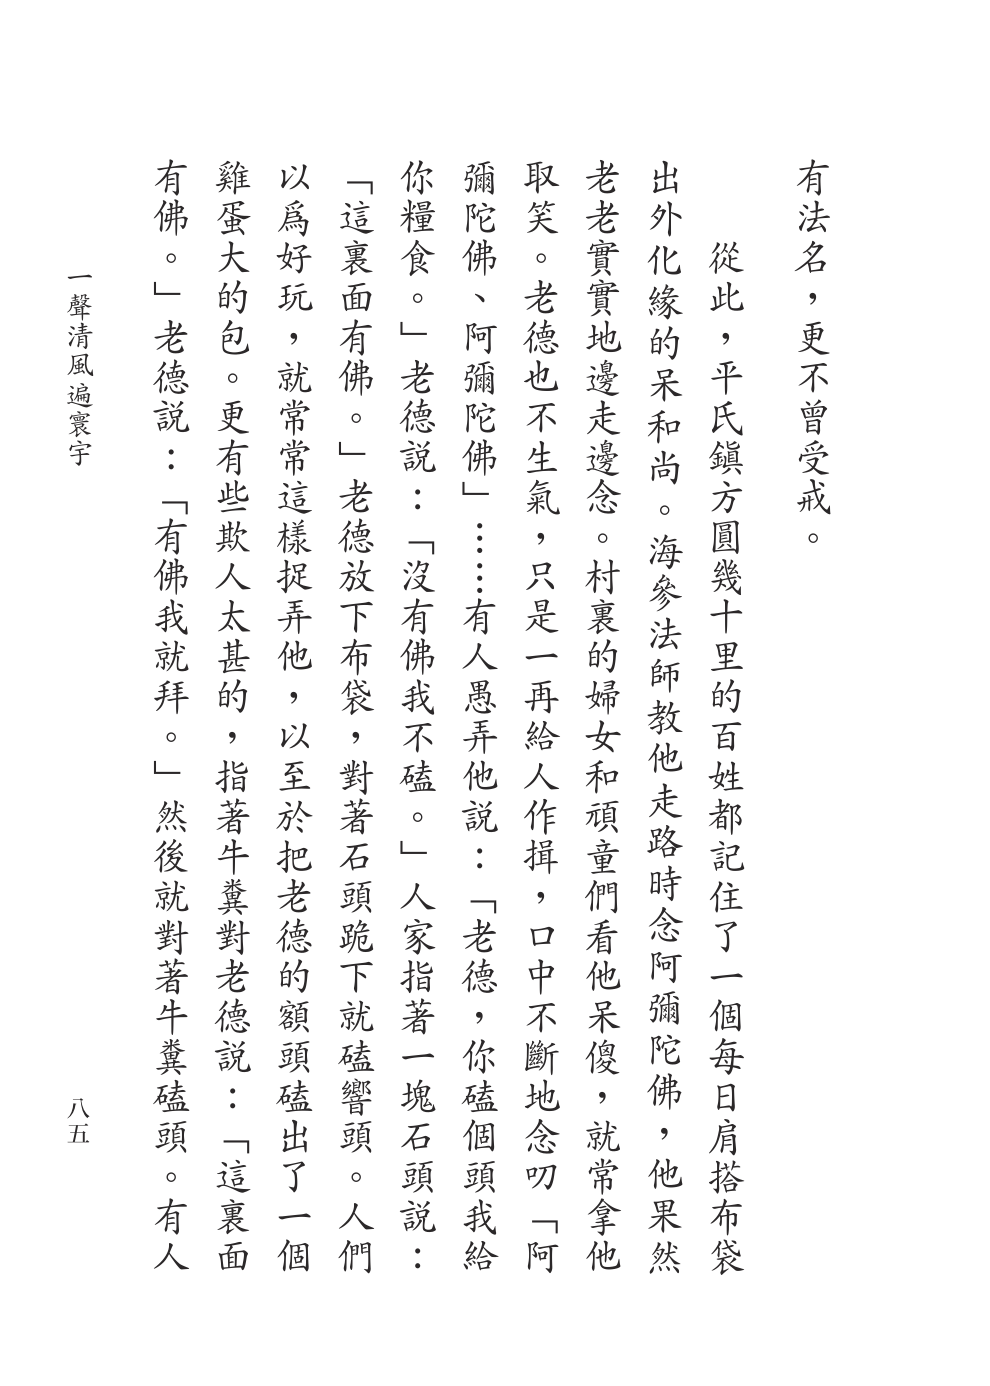 有法名，更不曾受戒。
從此，平氏鎮方圓幾十里的百姓都記住了一個每日肩搭布袋
出外化緣的呆和尚。海參法師教他走路時念阿彌陀佛，他果然
老老實實地邊走邊念。村裏的婦女和頑童們看他呆傻，就常拿他
取笑。老德也不生氣，只是一再給人作揖，口中不斷地念叨「阿
彌陀佛、阿彌陀佛」……有人愚弄他説：「老德，你磕個頭我給
你糧食。」老德説：「沒有佛我不磕。」人家指著一塊石頭説：
「這裏面有佛。」老德放下布袋，對著石頭跪下就磕響頭。人們
以爲好玩，就常常這樣捉弄他，以至於把老德的額頭磕出了一個
雞蛋大的包。更有些欺人太甚的，指著牛糞對老德説：「這裏面
有佛。」老德説：「有佛我就拜。」然後就對著牛糞磕頭。有人
一聲清風遍寰宇
八五